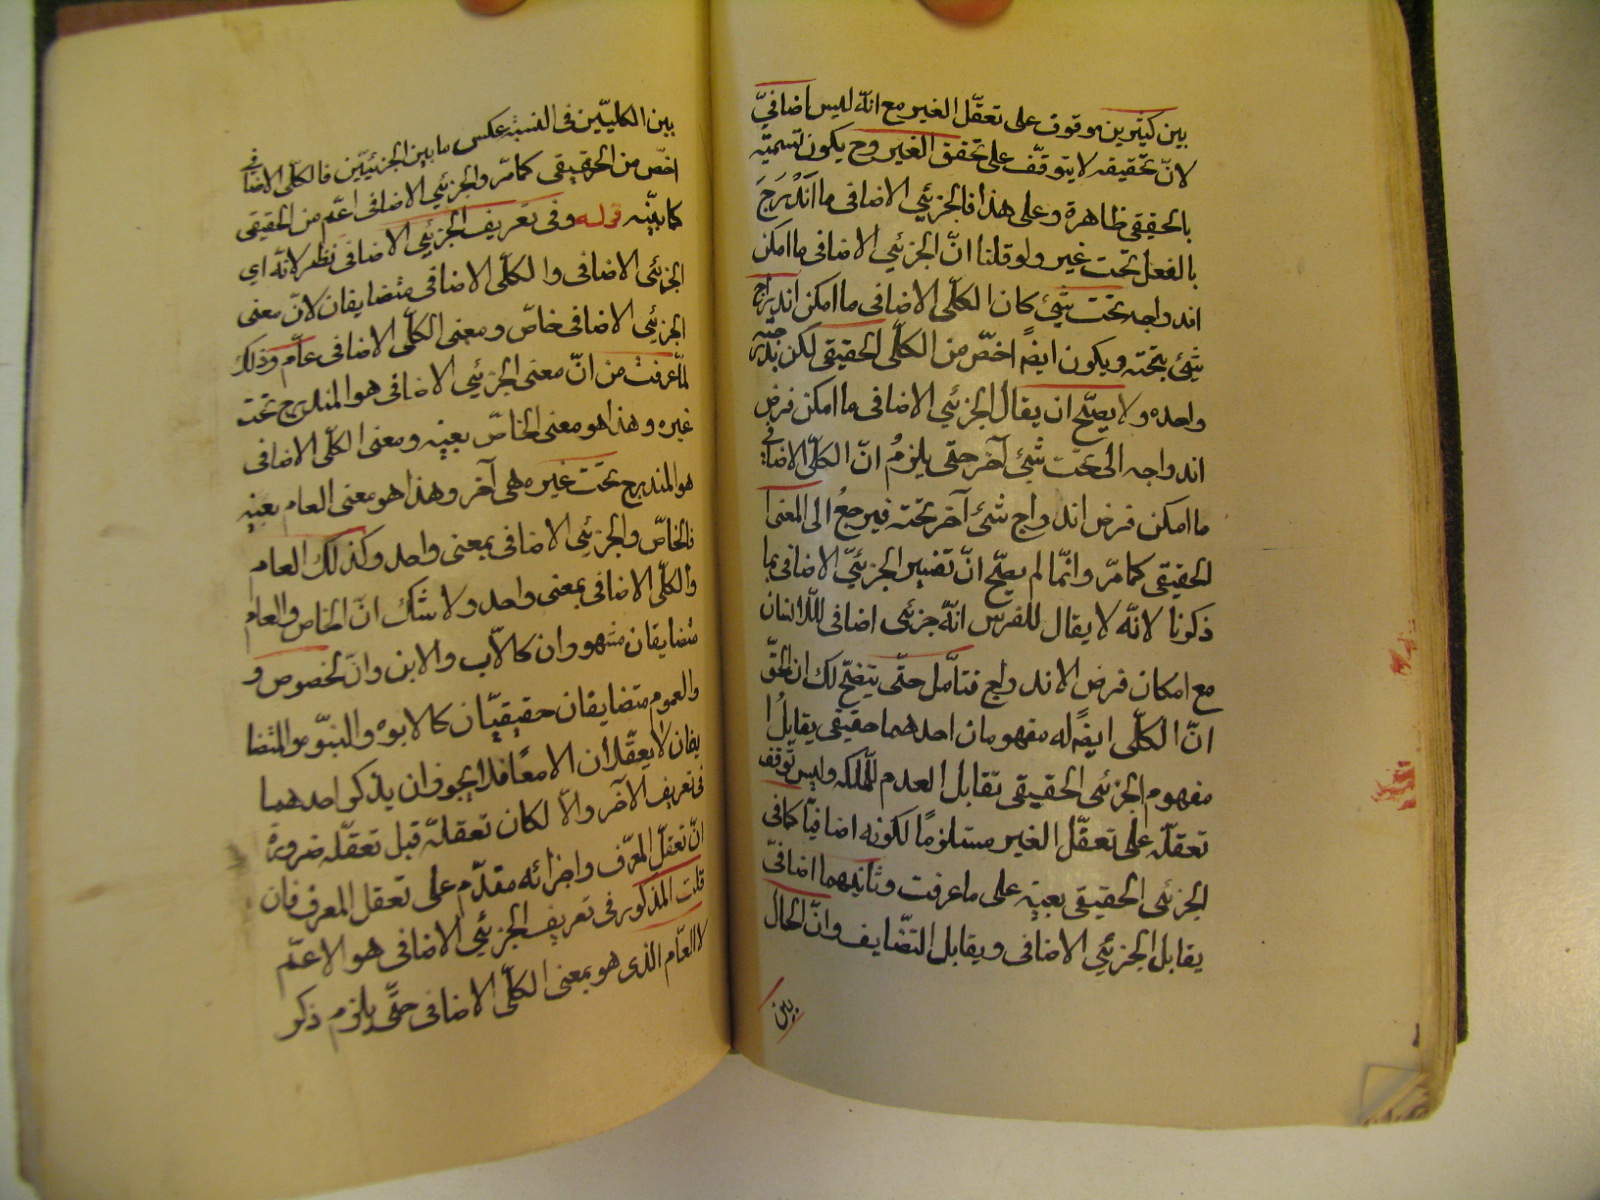 بين كثيرين موقوف على تعقّل الغير مع انّه ليس اضافيّ
لانّ تحقيقه لا يتوقّف على تحقق الغير وح يكون تسميته
بالحقيقى ظاهرة وعلى هذا فالجزئي الاضافى ما اندرج
بالفعل تحت غير ولو قلنا انّ الجزئي الاضافى ما امكن
اندراجه تحت شئ كان الكلّى الاضافى ما امكن اندراج
شئ تحته ويكون ايضً اخصّ من الكلّى الحقيقى لكن بدرجة
واحده ولا يصحّ ان يقال الجزئي الاضافى ما امكن فرض
اندراجه الى تحت شئ آخر حتى يلزم انّ الكلّى الاضافى
ما امكن فرض اندراج شئ آخر تحته فيرجع الى المعنى
الحقيقى كما مرّ وانّما لم يصحّ انّ تفسير الجزئيّ الاضافى بما
ذكرنا لانّه لا يقال للفرس انّه جزئى اضافى للانسان
مع امكان فرض الاندراج فتأمّل حتّى يتضح لك ان الحقّ
انّ الكلّى ايضً له مفهومان احدهما حقيقى يقابل
مفهوم الجزئى الحقيقى تقابل العدم للملكه وليس توقف
تعقلّه على تعقّل الغير مستلزمًا لكونه اضافيّا كما فى
الجزئى الحقيقى بعينه على ما عرفت وثانيهما اضافىّ
يقابل الجزئي الاضافى ويقابل التضّايف وانّ الحال
بين
بين الكليّين فى النسبة عكس ما بين الجزئيّين فالكلّى الاضافى
اخصّ من الحقيقى كما مرّ والجزئي الاضافى اعمّ من الحقيقى
كما بيّنه قوله وفى تعريف الجزئي الاضافى نظر لانّه اى
الجزئى الاضافى والكلّى الاضافى متضايفان لانّ معنى
الجزئي الاضافى خاصّ ومعنى الكلّى الاضافى عامّ وذلك
لما عرفت من انّ معنى الجزئي الاضافى هو المندرج تحت
غيره وهذا هو معنى الخاصّ بعينه ومعنى الكلّى الاضافى
هو المندرج تحت غيره هى آخر وهذا هو معنى العام بعينه
فالخاصّ والجزئي الاضافى بمعنى واحد وكذلك العام
والكلّى الاضافى بمعنى واحد ولا شك انّ الخاص والعام
متضايفان مشهوران كالاب والابن وانّ الخصوص و
والعموم متضايفان حقيقيّان كالابوه والبنوّ والمتضا
يفان لا يعقّلان الا معًا فلا يجوز ان يذكر احدهما
فى تعريف الآخر والاّ لكان تعقلّه قبل تعقلّه ضرورة
انّ تعقل المعّرف واجزائه مقدّم على تعقل المعرف فان
قلت المذكور فى تعريف الجزئي الاضافى هو الاعمّ
لا العّام الذى هو بمعنى الكلّى الاضافى حتّى يلزم ذكر